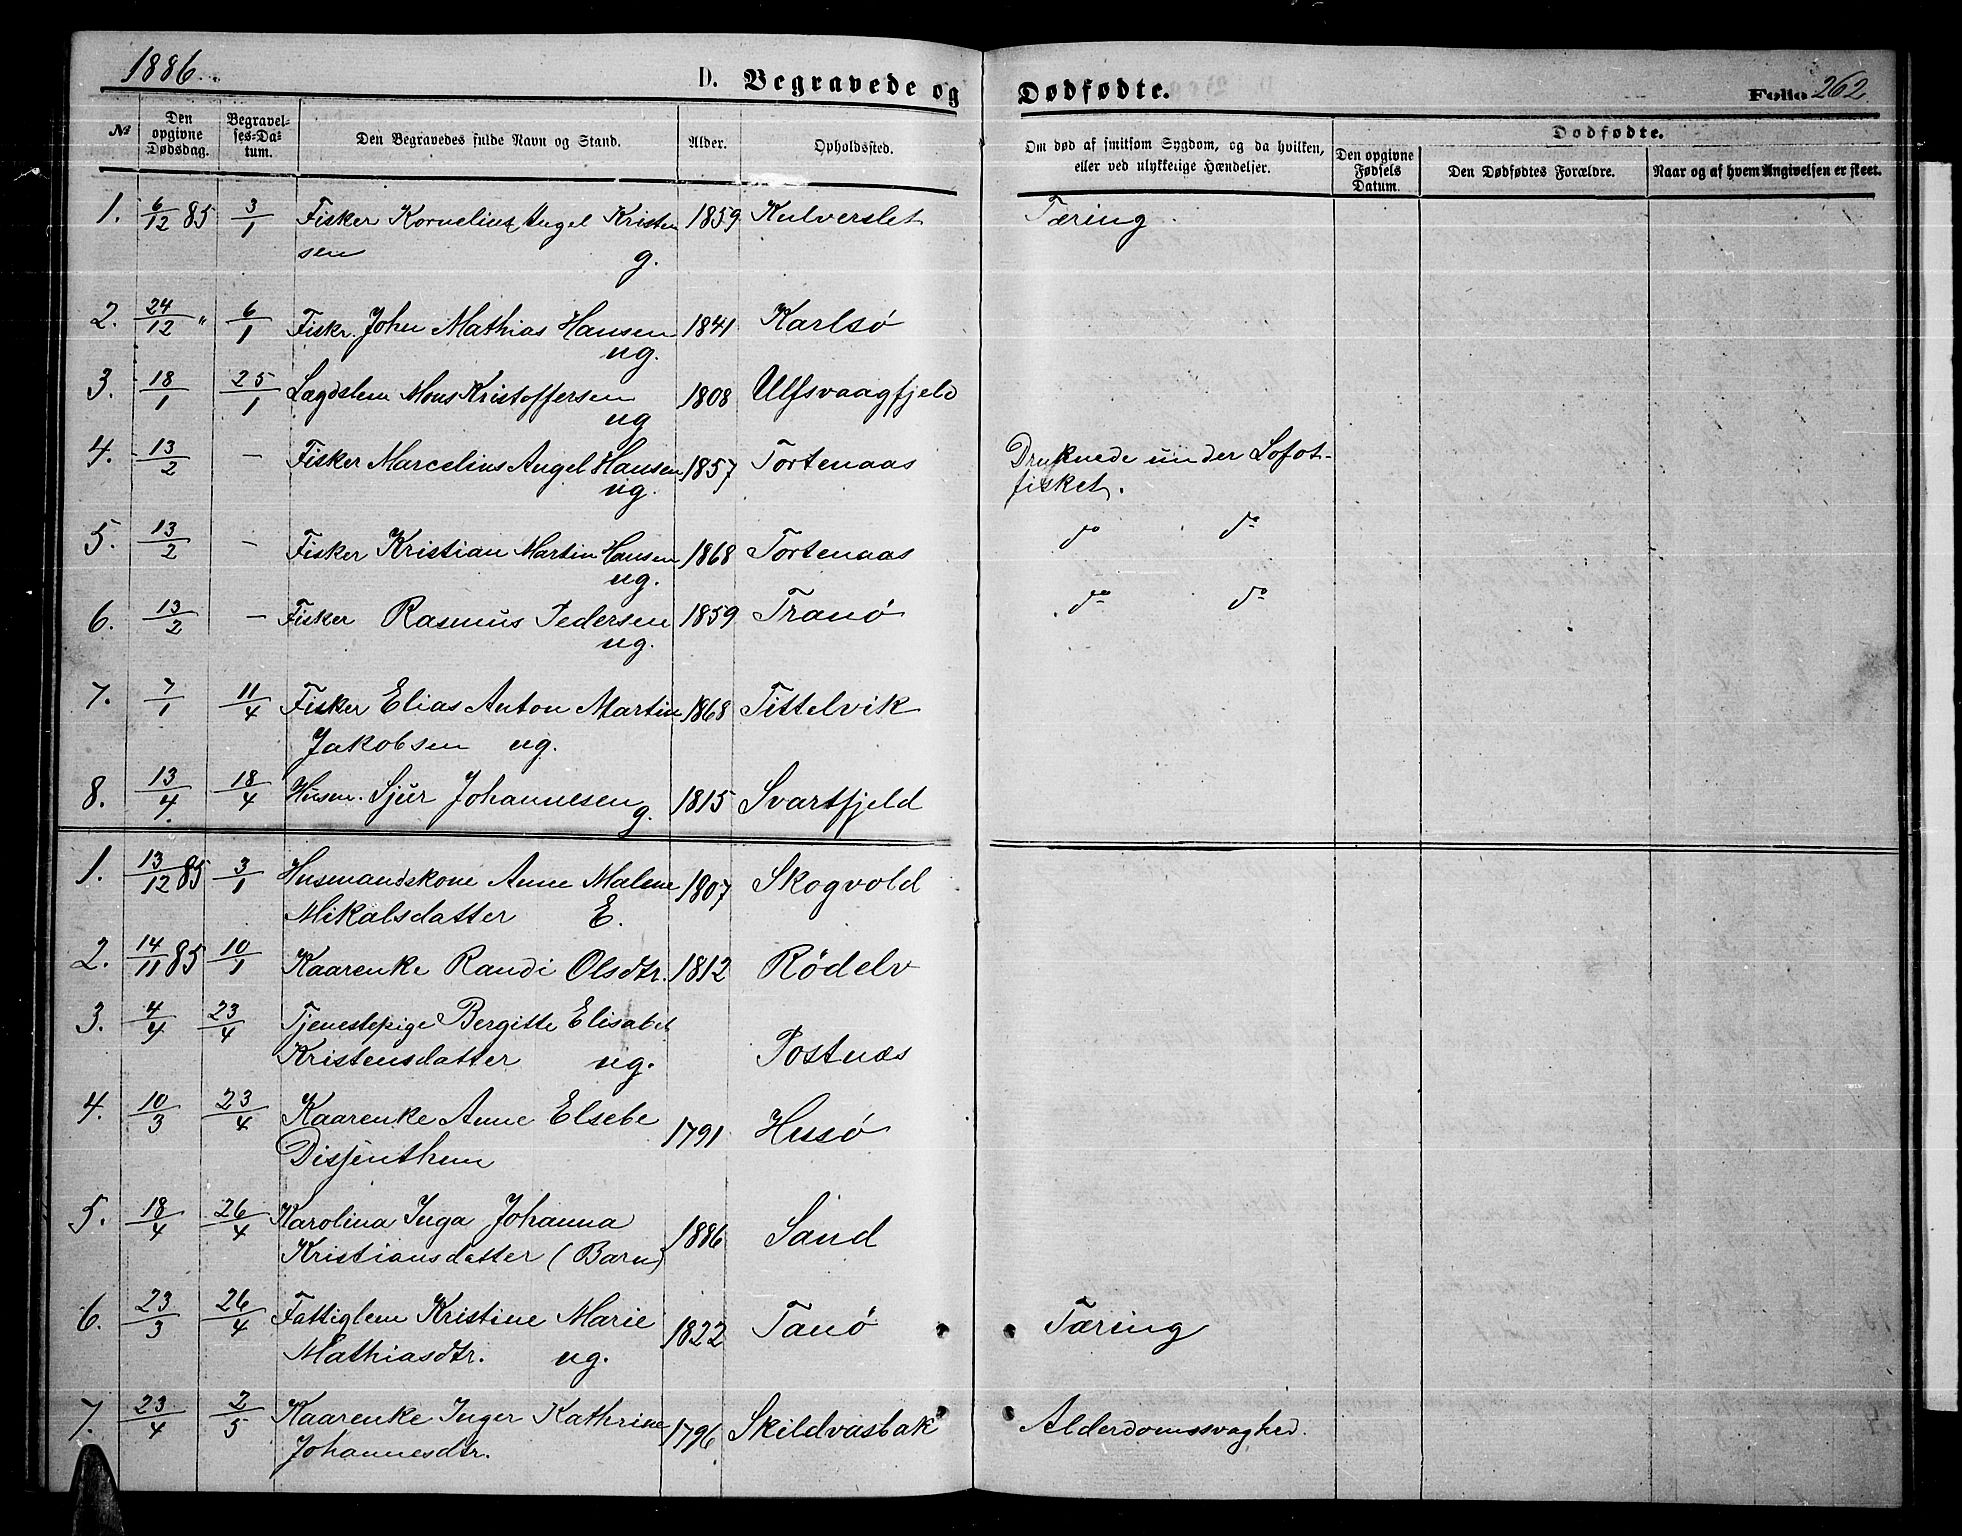 1886.
D. Begravede og Dødfødte.
Folio 262
№
Den opgivne Dødsdag.
Begravelses-Datum.
Den Begravedes fulde Navn og Stand.
Alder.
Opholdssted.
Om død af smitsom Sygdom, og da hvilken, eller ved ulykkelige Hændelser.
Dødfødte.
Den opgivne Fødsels Datum.
Den Dødfødtes Forældre.
Naar og af hvem Angivelsen er skeet.
1. 6/12 85 3/1 Fisker Kornelius Angel Kristen 1859 Kulverslet Tæring
sen g.
2. 24/12 " 6/1 Fiskr. John Mathias Hansen 1841 Karlsø
ug.
3. 18/1 25/1 Lægdslem Mons Kristoffersen 1808 Ulfsvaagfjeld
ug
4. 13/2 — Fisker Marcelius Angel Hansen 1857 Tortenaas Druknede under Lofot-
ug. fisket.
5. 13/2 — Fisker Kristian Martin Hansen 1868 Tortenaas do do
ug.
6. 13/2 — Fisker Rasmus Pedersen 1859 Tranø do do
ug.
7. 7/1 11/4 Fisker Elias Anton Martin 1868 Tittelvik
Jakobsen ug.
8. 13/4. 18/4 Husm. Sjur Johannesen g. 1815 Svartfjeld
1. 13/12 85 3/1 Husmandskone Anne Malene 1807 Skogvold
Mikalsdatter E.
2. 14/11 85 10/1 Kaarenke Randi Olsdtr. 1812 Rødelv
3. 4/4 23/4 Tjenestepige Bergitte Elisabet
Kristensdatter ug. Postnæs
4. 10/3 23/4 Kaarenke Anne Elsebe 1791 Husø
Disjenthun
5. 18/4 26/4 Karolina Inga Johanna 1886 Sand
Kristiansdatter (Barn)
6. 23/3 26/4 Fattiglem Kristine Marie 1822 Tanø Tæring
Mathiasdtr. ug.
7. 23/4 2/5 Kaarenke Inger Kathrine 1796 Skildvasbak Alderdomssvaghed.
Johannesdtr.